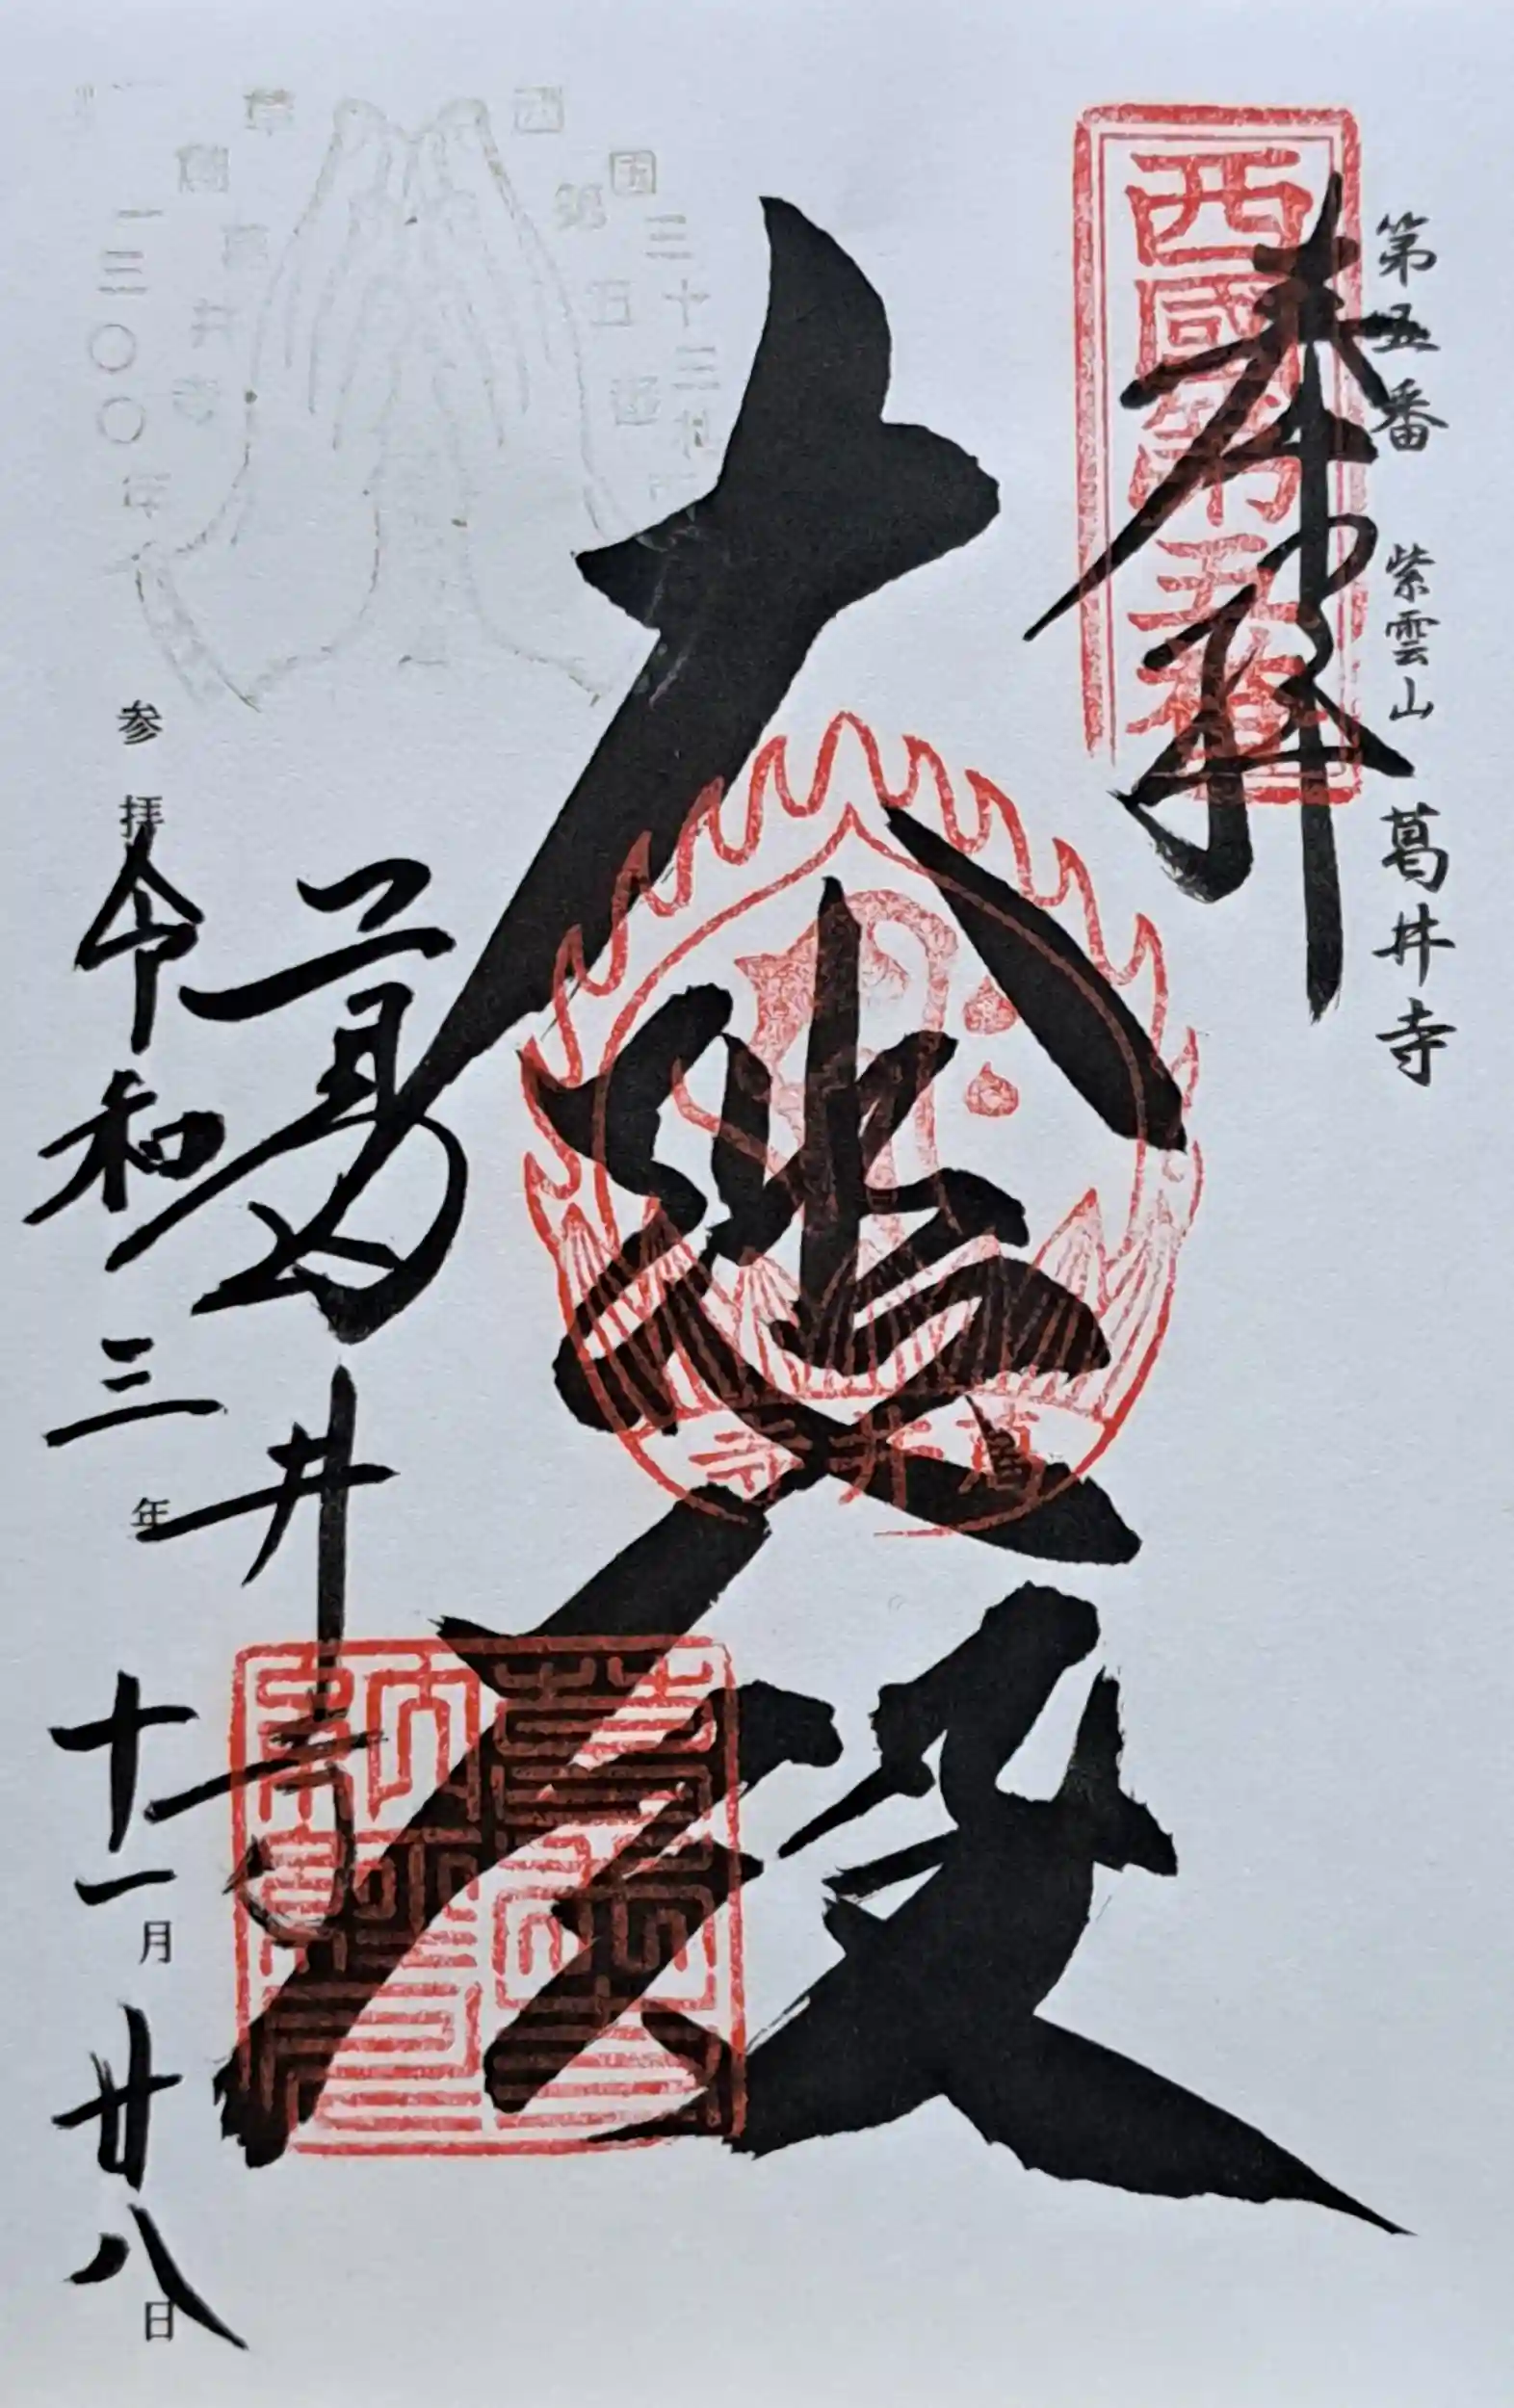 第五番 紫雲山 葛井寺
西國第五番
奉拝
大悲殿
葛井寺
葛井寺
西国三十三札所
第五番
葛井寺
草創一三〇〇年
参拝 令和三年十一月廿八日